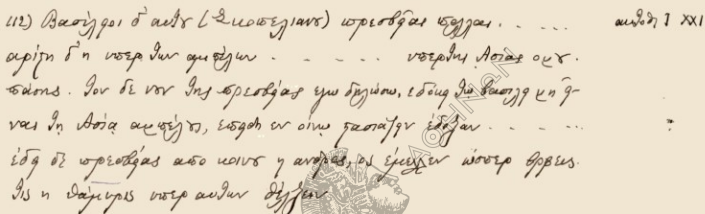 112) Βασίλεοι δ' αυτου (του Σκοπελιανου) πρεσβείαι πολλαι . . . . . αυτόθι I XXI
αρίστη δ' η υπερ των αμπέλων . . . . . υπερ της Ασιας ομου
πάσης. τον δε νουν της πρεσβείας εγω δηλώσω, εδόκει τω βασιλεί μη εί-
ναι τη Ασία αμπέλους, επειδη εν οινω στασιάζειν έδοξαν . . . . . :
έδει δε πρεσβείας απο κοινου και ανδρος, ος έμελλεν ώσπερ Ορφευς
τις η Θάμυρις υπερ αυτων θέλξειν
ΑΘΗΝΩΝ